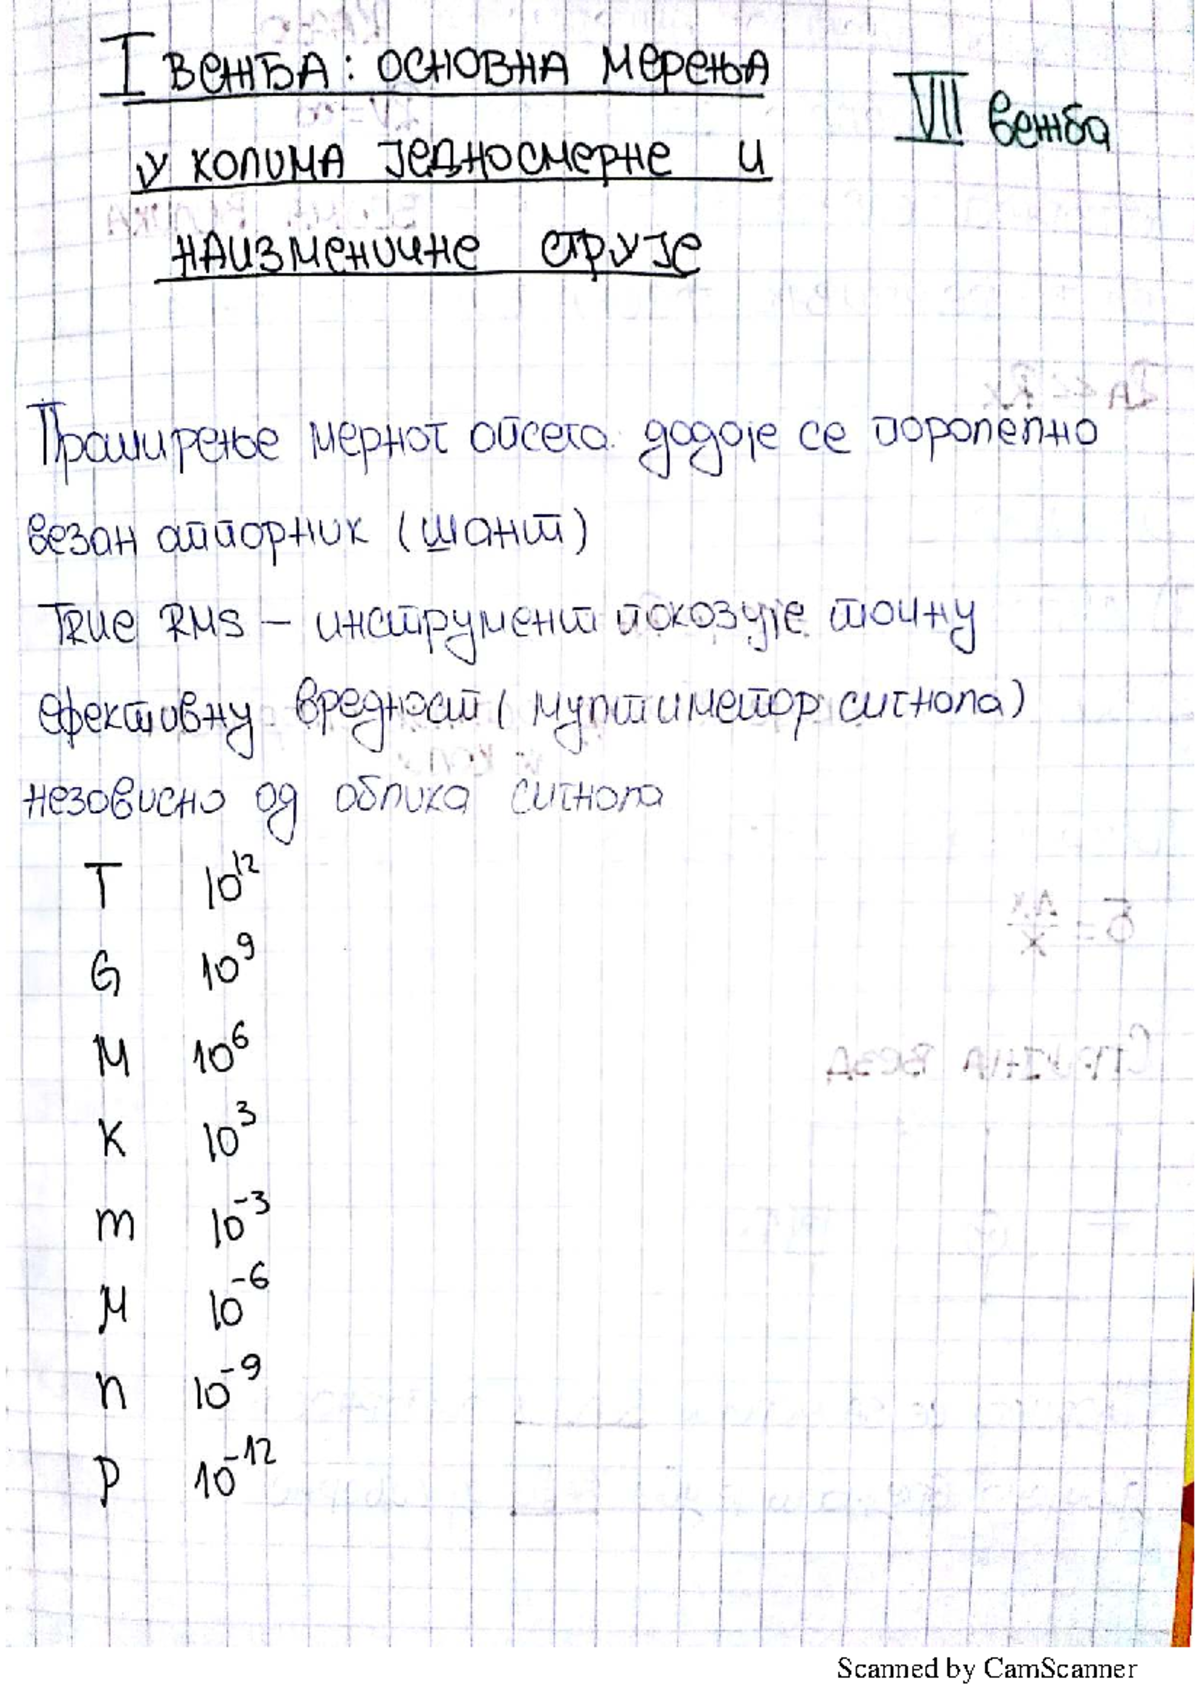 I ВЕЖБА: ОСНОВНА МЕРЕЊА
У КОЛИМА ЈЕДНОСМЕРНЕ И
НАИЗМЕНИЧНЕ СТРУЈЕ
VII вежба
Проширење мерног опсега: додаје се паралелно
везан отпорник (шант)
TRUE RMS – инструмент показује тачну
ефективну вредност (мултиметар сигнала)
независно од облика сигнала
T 10¹²
G 10⁹
M 10⁶
K 10³
m 10⁻³
μ 10⁻⁶
n 10⁻⁹
p 10⁻¹²
Scanned by CamScanner